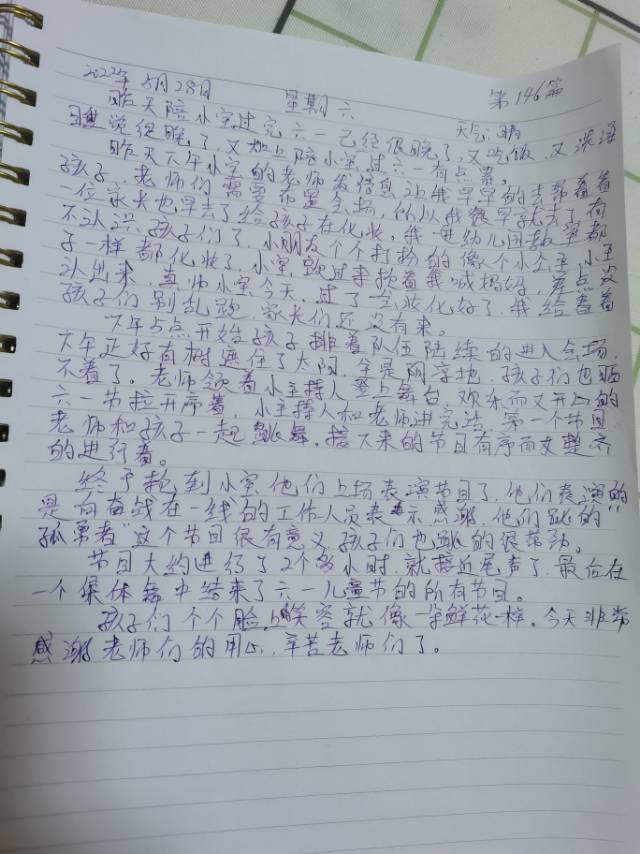 2022年5月28日 星期六 第146篇
天气:晴
昨天陪小宝过完六一已经很晚了,又吃饭,又洗澡
睡觉很晚了,又加上陪小宝过六一有点累。
昨天下午小宝的老师发信息让我早早的去帮着看
孩子,老师们需要布置会场,所以我很早就去了,有
一位家长也早去了给孩子在化妆,我一进幼儿园教室都
不认识孩子们了,小朋友个个打扮的像个小公主,小王
子一样都化妆了,小宝跑过来抱着我喊妈妈,差点没
认出来,直小宝今天,过了会妆化好了,我给看着
孩子们别乱跑,家长们还没有来。
下午5点开始孩子排着队伍陆续的进入会场,
下午正好有树遮住了太阳,全是阴凉地,孩子们也晒
不着了。老师领着小主持人登上舞台,欢乐而又开心的
六一节拉开序幕,小主持人和老师讲完话,第一个节目
老师和孩子一起跳舞,接下来的节目有序而又整齐
的进行着。
终于轮到小宝他们上场表演节目了,他们表演的
是向奋战在一线的工作人员表示感谢,他们跳的"
孤勇者"这个节目很有意义,孩子们也跳的很带劲。
节目大约进行了2个多小时,就接近尾声了,最后在
一个集体舞中结束了六一儿童节的所有节目。
孩子们个个脸上笑容就像一朵鲜花一样,今天非常
感谢老师们的用心,辛苦老师们了。